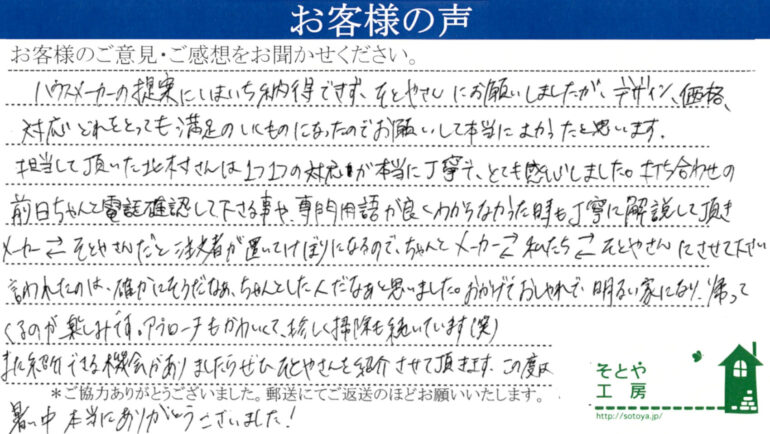 お客様の声
お客様のご意見・ご感想をお聞かせください。
ハウスメーカーの提案にいまいち納得できず、そとやさんにお願いしましたが、デザイン、価格、
対応どれをとっても満足のいくものになったのでお願いして本当によかったと思います。
担当して頂いた北村さんは1つ1つの対応が本当に丁寧で、とても感心しました。打ち合わせの
前日ちゃんと電話確認して下さる事や、専門用語が良くわからなかった時も丁寧に解説して頂き
メーカー⇄そとやさんだと注文者が置いてけぼりになるので、ちゃんとメーカー⇄私たち⇄そとやさんにさせて下さい
言われたのは、確かにそうだなぁ、ちゃんとした人だなぁと思いました。おかげでおしゃれで明るい家になり、帰って
くるのが楽しみです。アプローチもかわいくて、珍しく掃除も続いています(笑)
また紹介できる機会がありましたらぜひそとやさんを紹介させて頂きます。この度は
*ご協力ありがとうございました。郵送にてご返送のほどお願いいたします。
暑い中本当にありがとうございました!
そとや
工房
http://sotoya.jp/